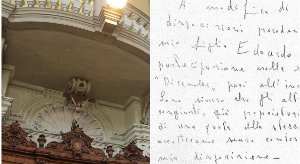 A modifica di
disposizioni preceden
mio figlio Edoardo
partecipazione nella s
"Dicembre", pari all'in
Sono sicuro che gli all
congiunti, già proprietari
di una quota della stessa
accetteranno senza contes
mia disposizione.